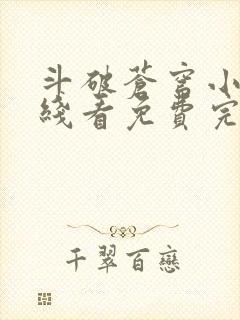 斗破蒼穹小
綫看免費完
千翠百戀